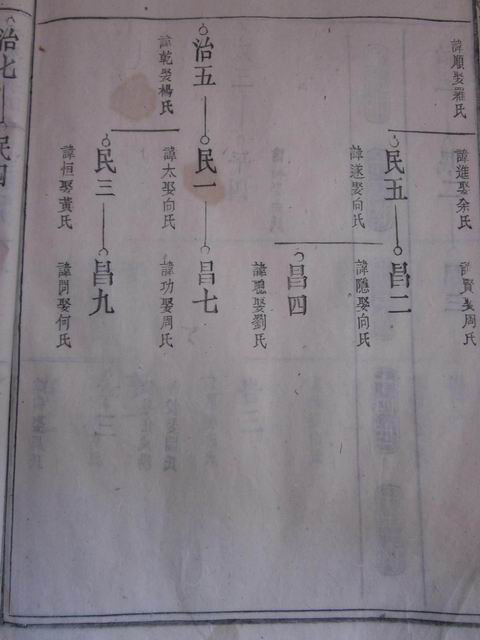 諱順娶羅氏
諱進娶余氏
諱賢娶周氏
民五
諱遂娶向氏
昌二
諱隱娶向氏
昌四
諱聰娶劉氏
治五
諱乾娶楊氏
民一
諱太娶向氏
昌七
諱功娶周氏
民三
諱恒娶黃氏
昌九
娶何氏
治七
民四